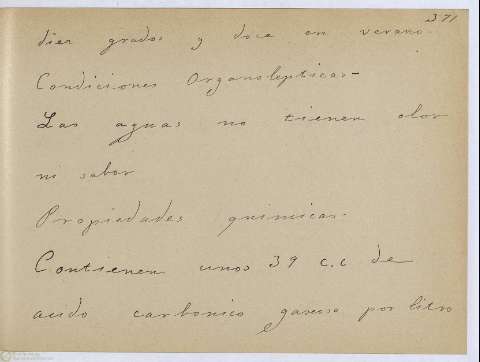 371
diez grados y doce en verano.
Condiciones Organolepticas-
Las aguas no tienen olor
ni sabor
Propiedades quimicas.
Contienen unos 39 c.c de
acido carbonico gaseoso por litro